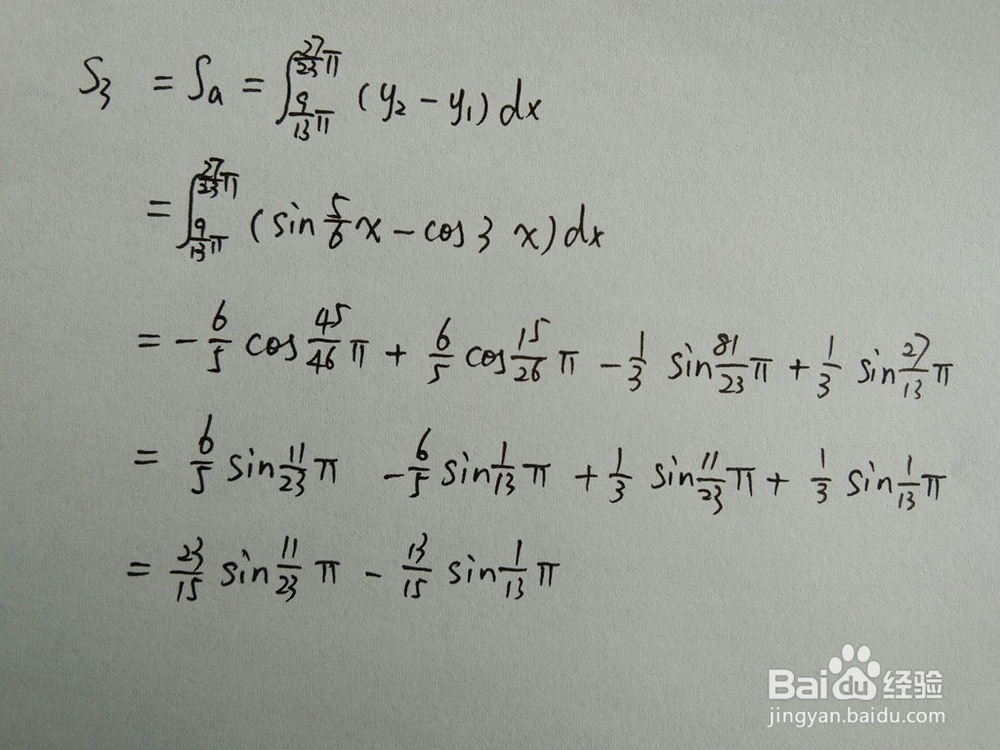 S₃ = Sₐ = ∫_{9/13 π}^{27/23 π} (y₂ - y₁) dx
= ∫_{9/13 π}^{27/23 π} (sin 5/6 x - cos 3 x) dx
= - 6/5 cos 45/46 π + 6/5 cos 15/26 π - 1/3 sin 81/23 π + 1/3 sin 27/13 π
= 6/5 sin 11/23 π - 6/5 sin 1/13 π + 1/3 sin 11/23 π + 1/3 sin 1/13 π
= 23/15 sin 11/23 π - 13/15 sin 1/13 π
Baidu 经验
jingyan.baidu.com